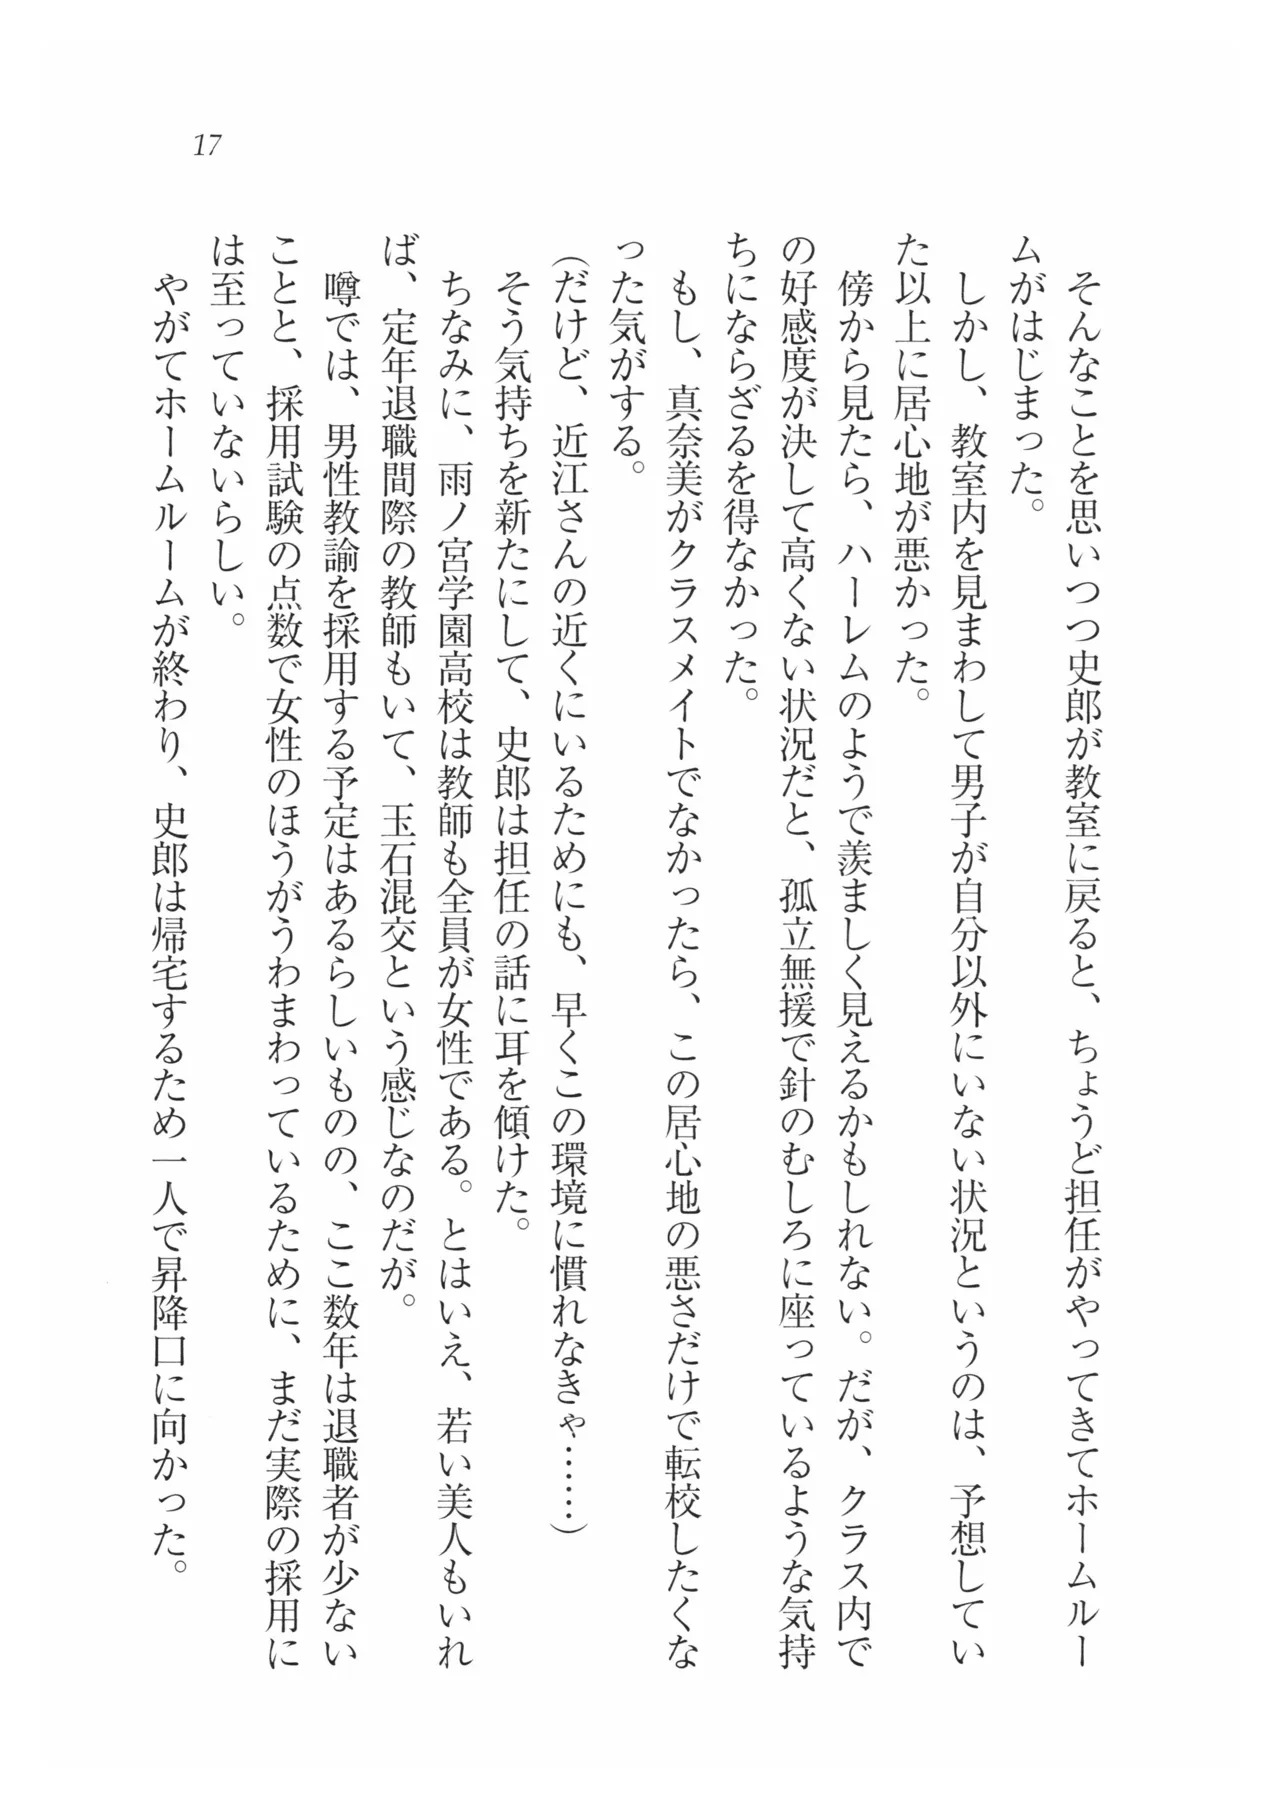 17
そんなことを思いつつ史郎が教室に戻ると、ちょうど担任がやってきてホームルー
ムがはじまった。
しかし、教室内を見まわして男子が自分以外にいない状況というのは、予想してい
た以上に居心地が悪かった。
傍から見たら、ハーレムのようで羨ましく見えるかもしれない。だが、クラス内で
の好感度が決して高くない状況だと、孤立無援で針のむしろに座っているような気持
ちにならざるを得なかった。
もし、真奈美がクラスメイトでなかったら、この居心地の悪さだけで転校したくな
った気がする。
(だけど、近江さんの近くにいるためにも、早くこの環境に慣れなきゃ……)
そう気持ちを新たにして、史郎は担任の話に耳を傾けた。
ちなみに、雨ノ宮学園高校は教師も全員が女性である。とはいえ、若い美人もいれ
ば、定年退職間際の教師もいて、玉石混交という感じなのだが。
噂では、男性教諭を採用する予定はあるらしいものの、ここ数年は退職者が少ない
ことと、採用試験の点数で女性のほうがうわまわっているために、まだ実際の採用に
は至っていないらしい。
やがてホームルームが終わり、史郎は帰宅するため一人で昇降口に向かった。